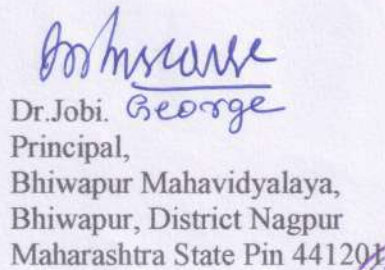 Dr.Jobi. George
Principal,
Bhiwapur Mahavidyalaya,
Bhiwapur, District Nagpur
Maharashtra State Pin 441201